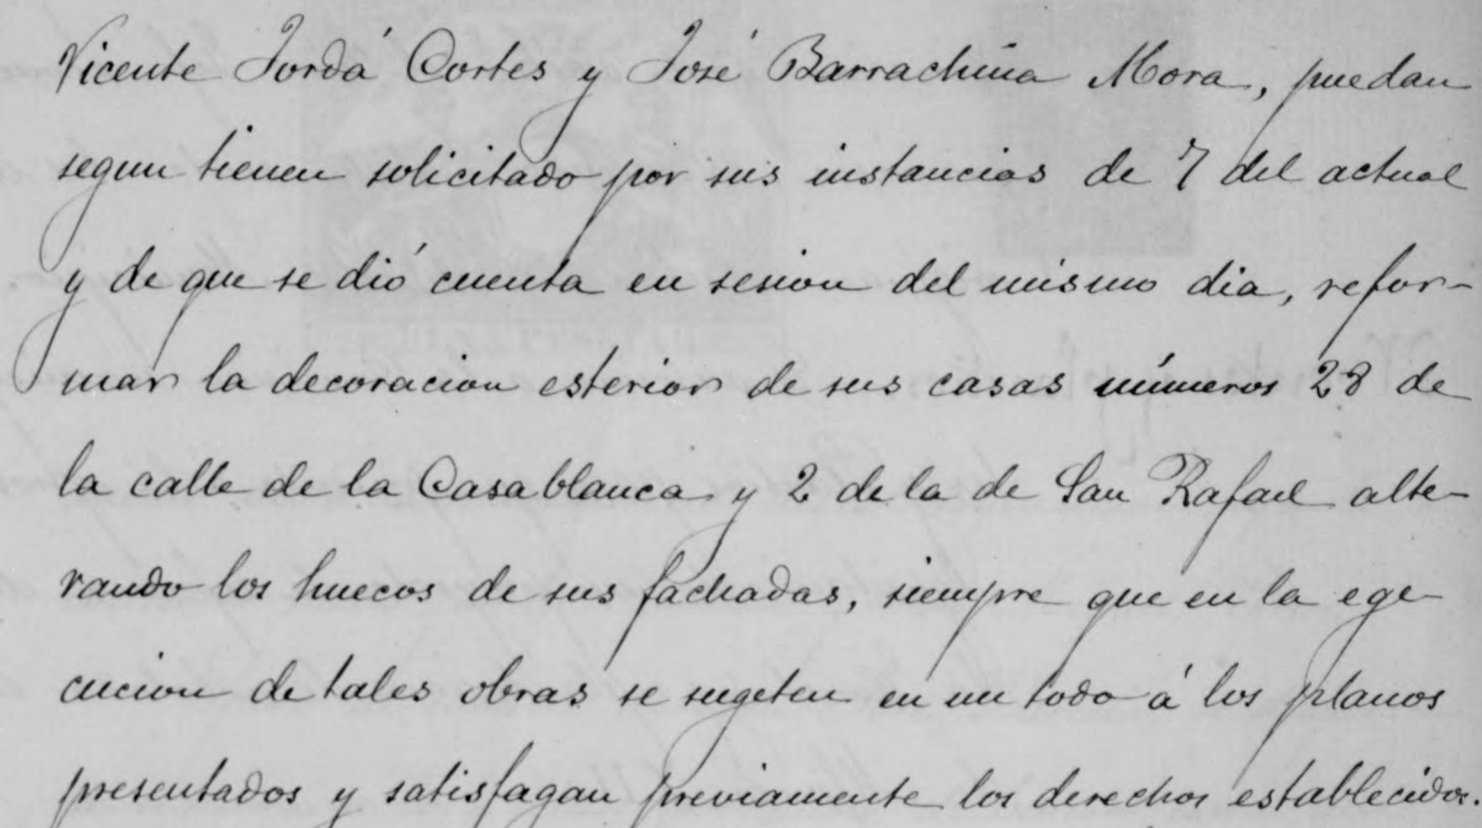 Vicente Jordá Cortes y José Barrachina Mora, puedan
segun tienen solicitado por sus instancias de 7 del actual
y de que se dió cuenta en sesion del mismo dia, refor-
mar la decoracion esterior de sus casas números 28 de
la calle de la Casablanca y 2 de la de San Rafael alte-
rando los huecos de sus fachadas, siempre que en la ege-
cucion de tales obras se sugeten en un todo á los planos
presentados y satisfagan previamente los derechos establecidos.